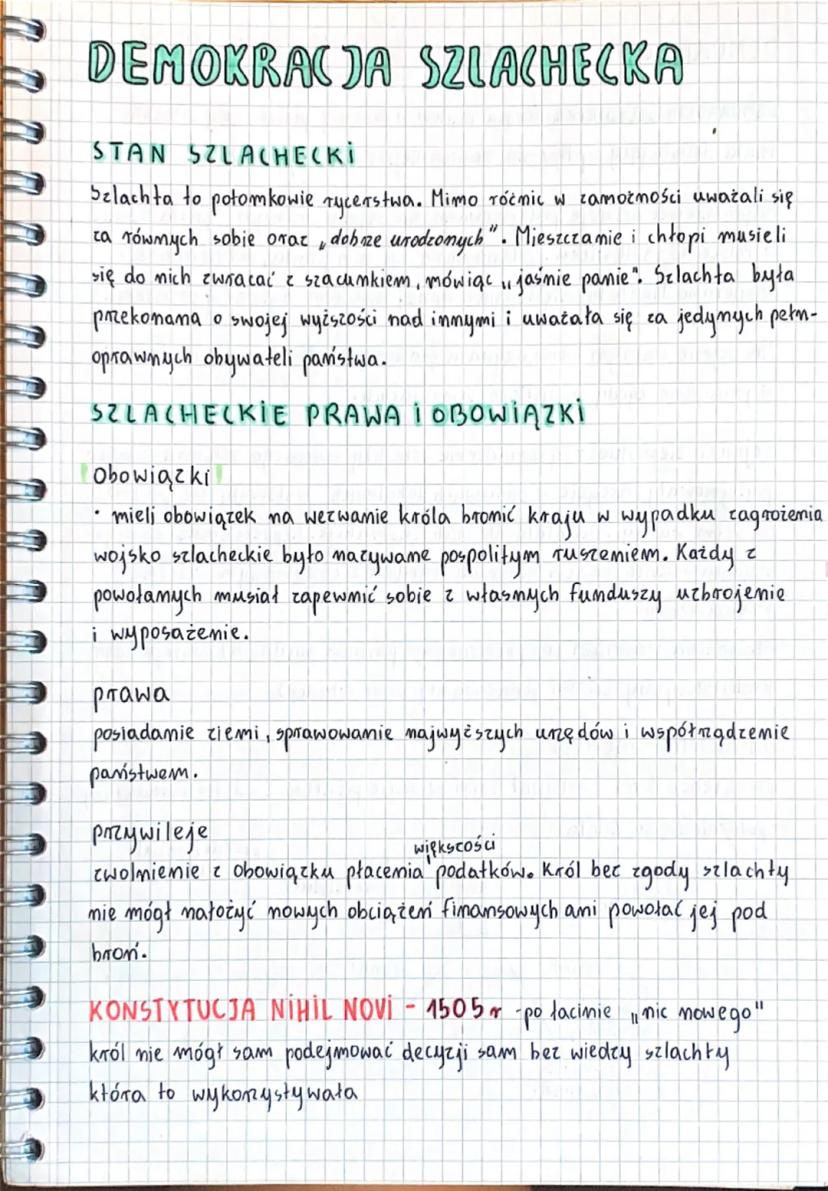 DEMOKRACJA SZLACHECKA
STAN SZLACHECKI
Szlachta to potomkowie rycerstwa. Mimo różnic w zamożności uważali się
za równych sobie oraz „dobrze urodzonych". Mieszczanie i chłopi musieli
się do nich zwracać z szacunkiem, mówiąc „jaśnie panie". Szlachta była
przekonana o swojej wyższości nad innymi i uważała się za jedynych pełn-
oprawnych obywateli państwa.
SZLACHECKIE PRAWA I OBOWIĄZKI
Obowiązki
• mieli obowiązek na wezwanie króla bronić kraju w wypadku zagrożenia
wojsko szlacheckie było nazywane pospolitym ruszeniem. Każdy z
powołanych musiał zapewnić sobie z własnych funduszy uzbrojenie
i wyposażenie.
prawa
posiadanie ziemi, sprawowanie najwyższych urzędów i współrządzenie
państwem.
przywileje
większości
zwolnienie z obowiązku płacenia podatków. Król bez zgody szlachty
nie mógł nałożyć nowych obciążeń finansowych ani powołać jej pod
broń.
KONSTYTUCJA NIHIL NOVI - 1505 r - po łacinie „nic nowego"
król nie mógł sam podejmować decyzji sam bez wiedzy szlachty
która to wykorzystywała